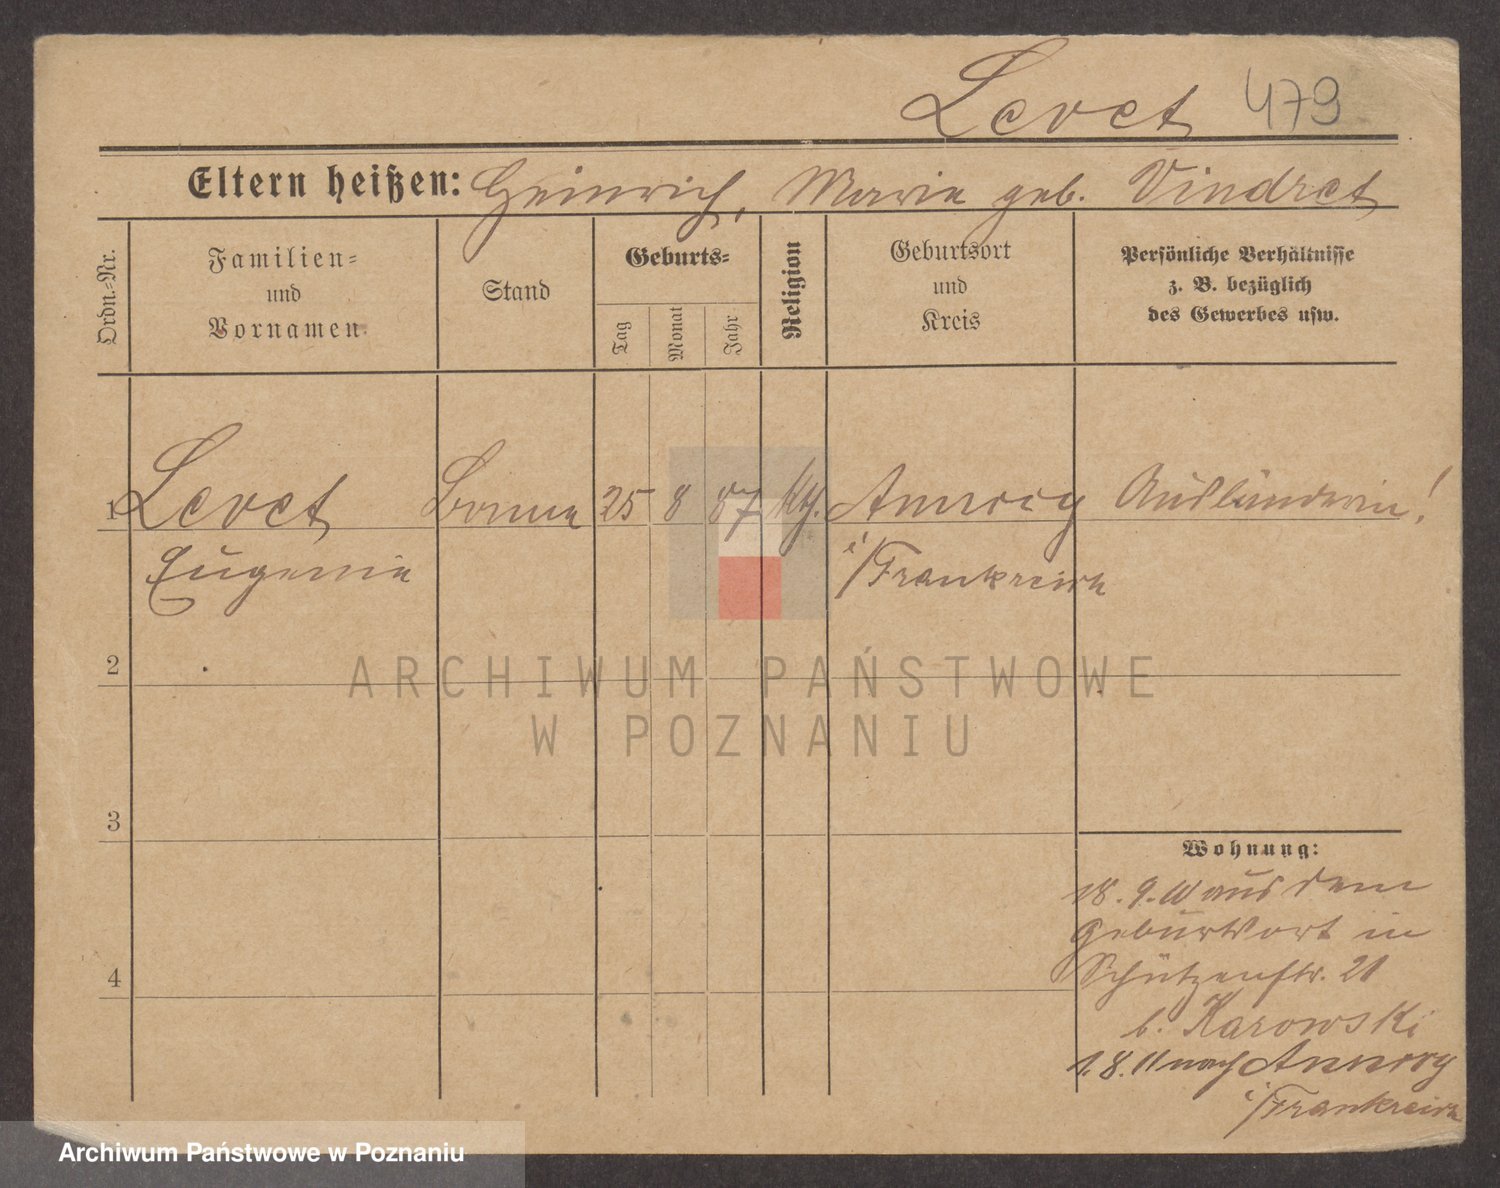 Levet 479
Eltern heißen: Heinrich, Marie geb. Vindret
Ordn.-Nr.
Familien-
und
Vornamen.
Stand
Geburts-
Tag
Monat
Jahr
Religion
Geburtsort
und
Kreis
Persönliche Verhältnisse
z. B. bezüglich
des Gewerbes usw.
1 Levet Bonne 25 8 87 kth. Ausländerin!
Eugenie i/Frankreich
2
3
4
Wohnung:
18. 9. 10 aus dem
Geburtsort in
Schützenstr. 21
b. Karowski
1. 8. 11 nach
i/Frankreich
ARCHIWUM PAŃSTWOWE
W POZNANIU
Archiwum Państwowe w Poznaniu